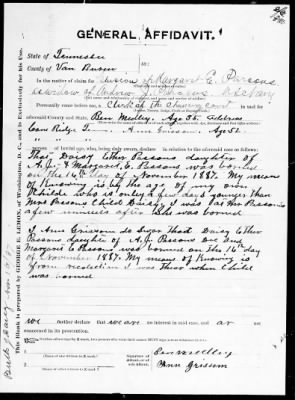 GENERAL AFFIDAVIT.
State of Tennessee
County of Van Buren
In the matter of claim for Pension of Margaret E. Parsons
Widow of
Personally came before me, a Clerk of the County Court in and for
aforesaid County and State Ben Medley. Age 35. Address
Cane Ridge Ann Grissom, Age 52
of lawful age, who, being duly sworn, declare in relation to the aforesaid case as follows:
That Daisy Ether Parsons daughter of
A. J. & Margaret, E. Parsons was borned
on the 16th day of November 1887. My means
of Knowing is by the age of my own
Childe who is only a few days younger than
Mrs Parsons Child Daisy. I was at Mr Parson's
a few minuets after She was borned
I Ann Grissom do Swear That Daisy Ether
Parsons daughter of A. J. Parsons Dec and
Margaret E Parsons was borned on the 16th day
of November 1887. My means of Knowing is
from recolection I was Thear when Child
was borned
we further declare that we are no interest in said case, and ar not
concerned in its prosecution.
Ben Medley
Ann Grissom
This Blank is prepared by GEORGE E. LEMON, of Washington, D. C., and is Exclusively for his Use.